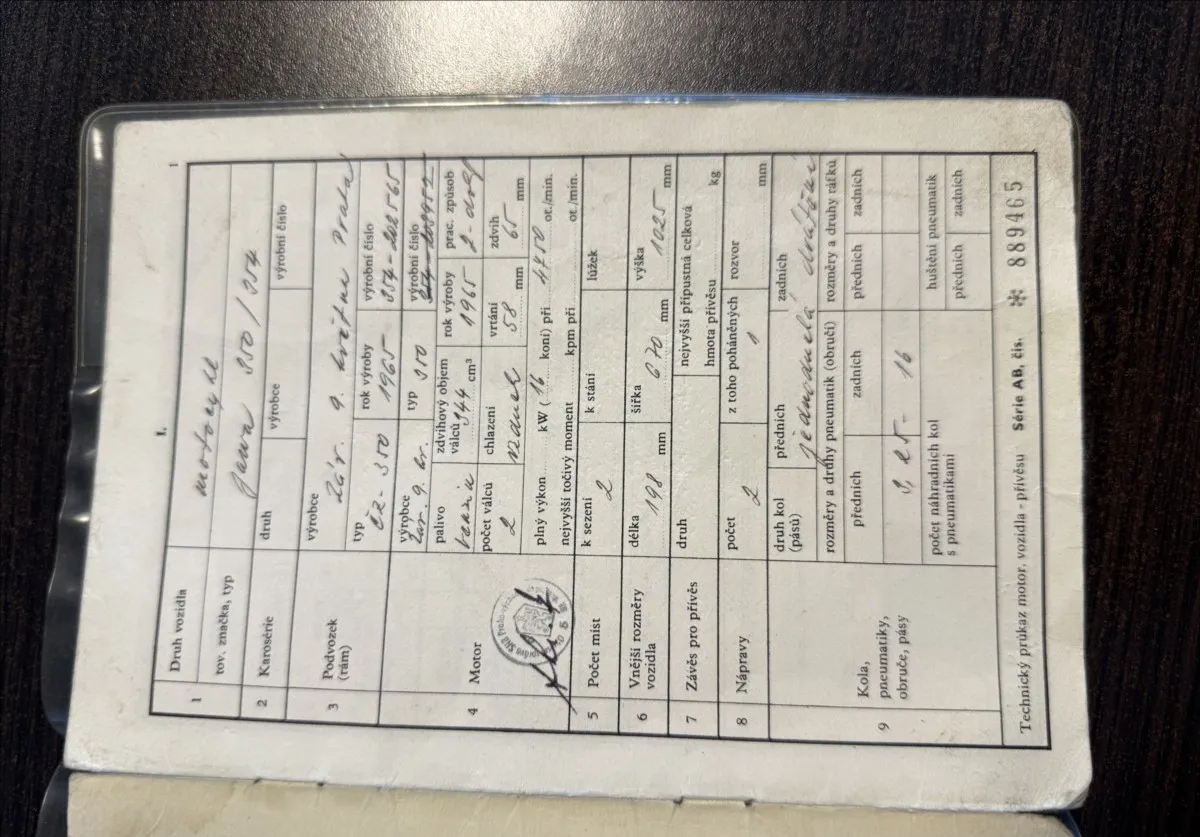 I. 1
1 Druh vozidla motocykl
tov. značka, typ Jawa 350/354
2 Karosérie druh výrobce výrobní číslo
3 Podvozek (rám) výrobce Záv. 9. května Praha
typ ČZ-350 rok výroby 1965 výrobní číslo 354-202565
4 Motor výrobce Záv. 9. kv. typ 350 výrobní číslo
palivo benzin zdvihový objem válců 344 cm³ rok výroby 1965 prac. způsob 2-dob
počet válců 2 chlazení vzduch vrtání 58 mm zdvih 65 mm
plný výkon kW (16 koní) při 4450 ot./min.
nejvyšší točivý moment kpm při ot./min.
5 Počet míst k sezení 2 k stání lůžek
6 Vnější rozměry vozidla délka 198 mm šířka 670 mm výška 1025 mm
7 Závěs pro přívěs druh nejvyšší přípustná celková hmota přívěsu kg
8 Nápravy počet 2 z toho poháněných 1 rozvor mm
9 Kola, pneumatiky, obruče, pásy
druh kol (pásů) předních zadních
jednoduchá drátěná
rozměry a druhy pneumatik (obručí) rozměry a druhy ráfků
předních zadních předních zadních
3,25-16
počet náhradních kol s pneumatikami huštění pneumatik
předních zadních
Technický průkaz motor. vozidla - přívěsu Série AB, čís. ✻ 889465